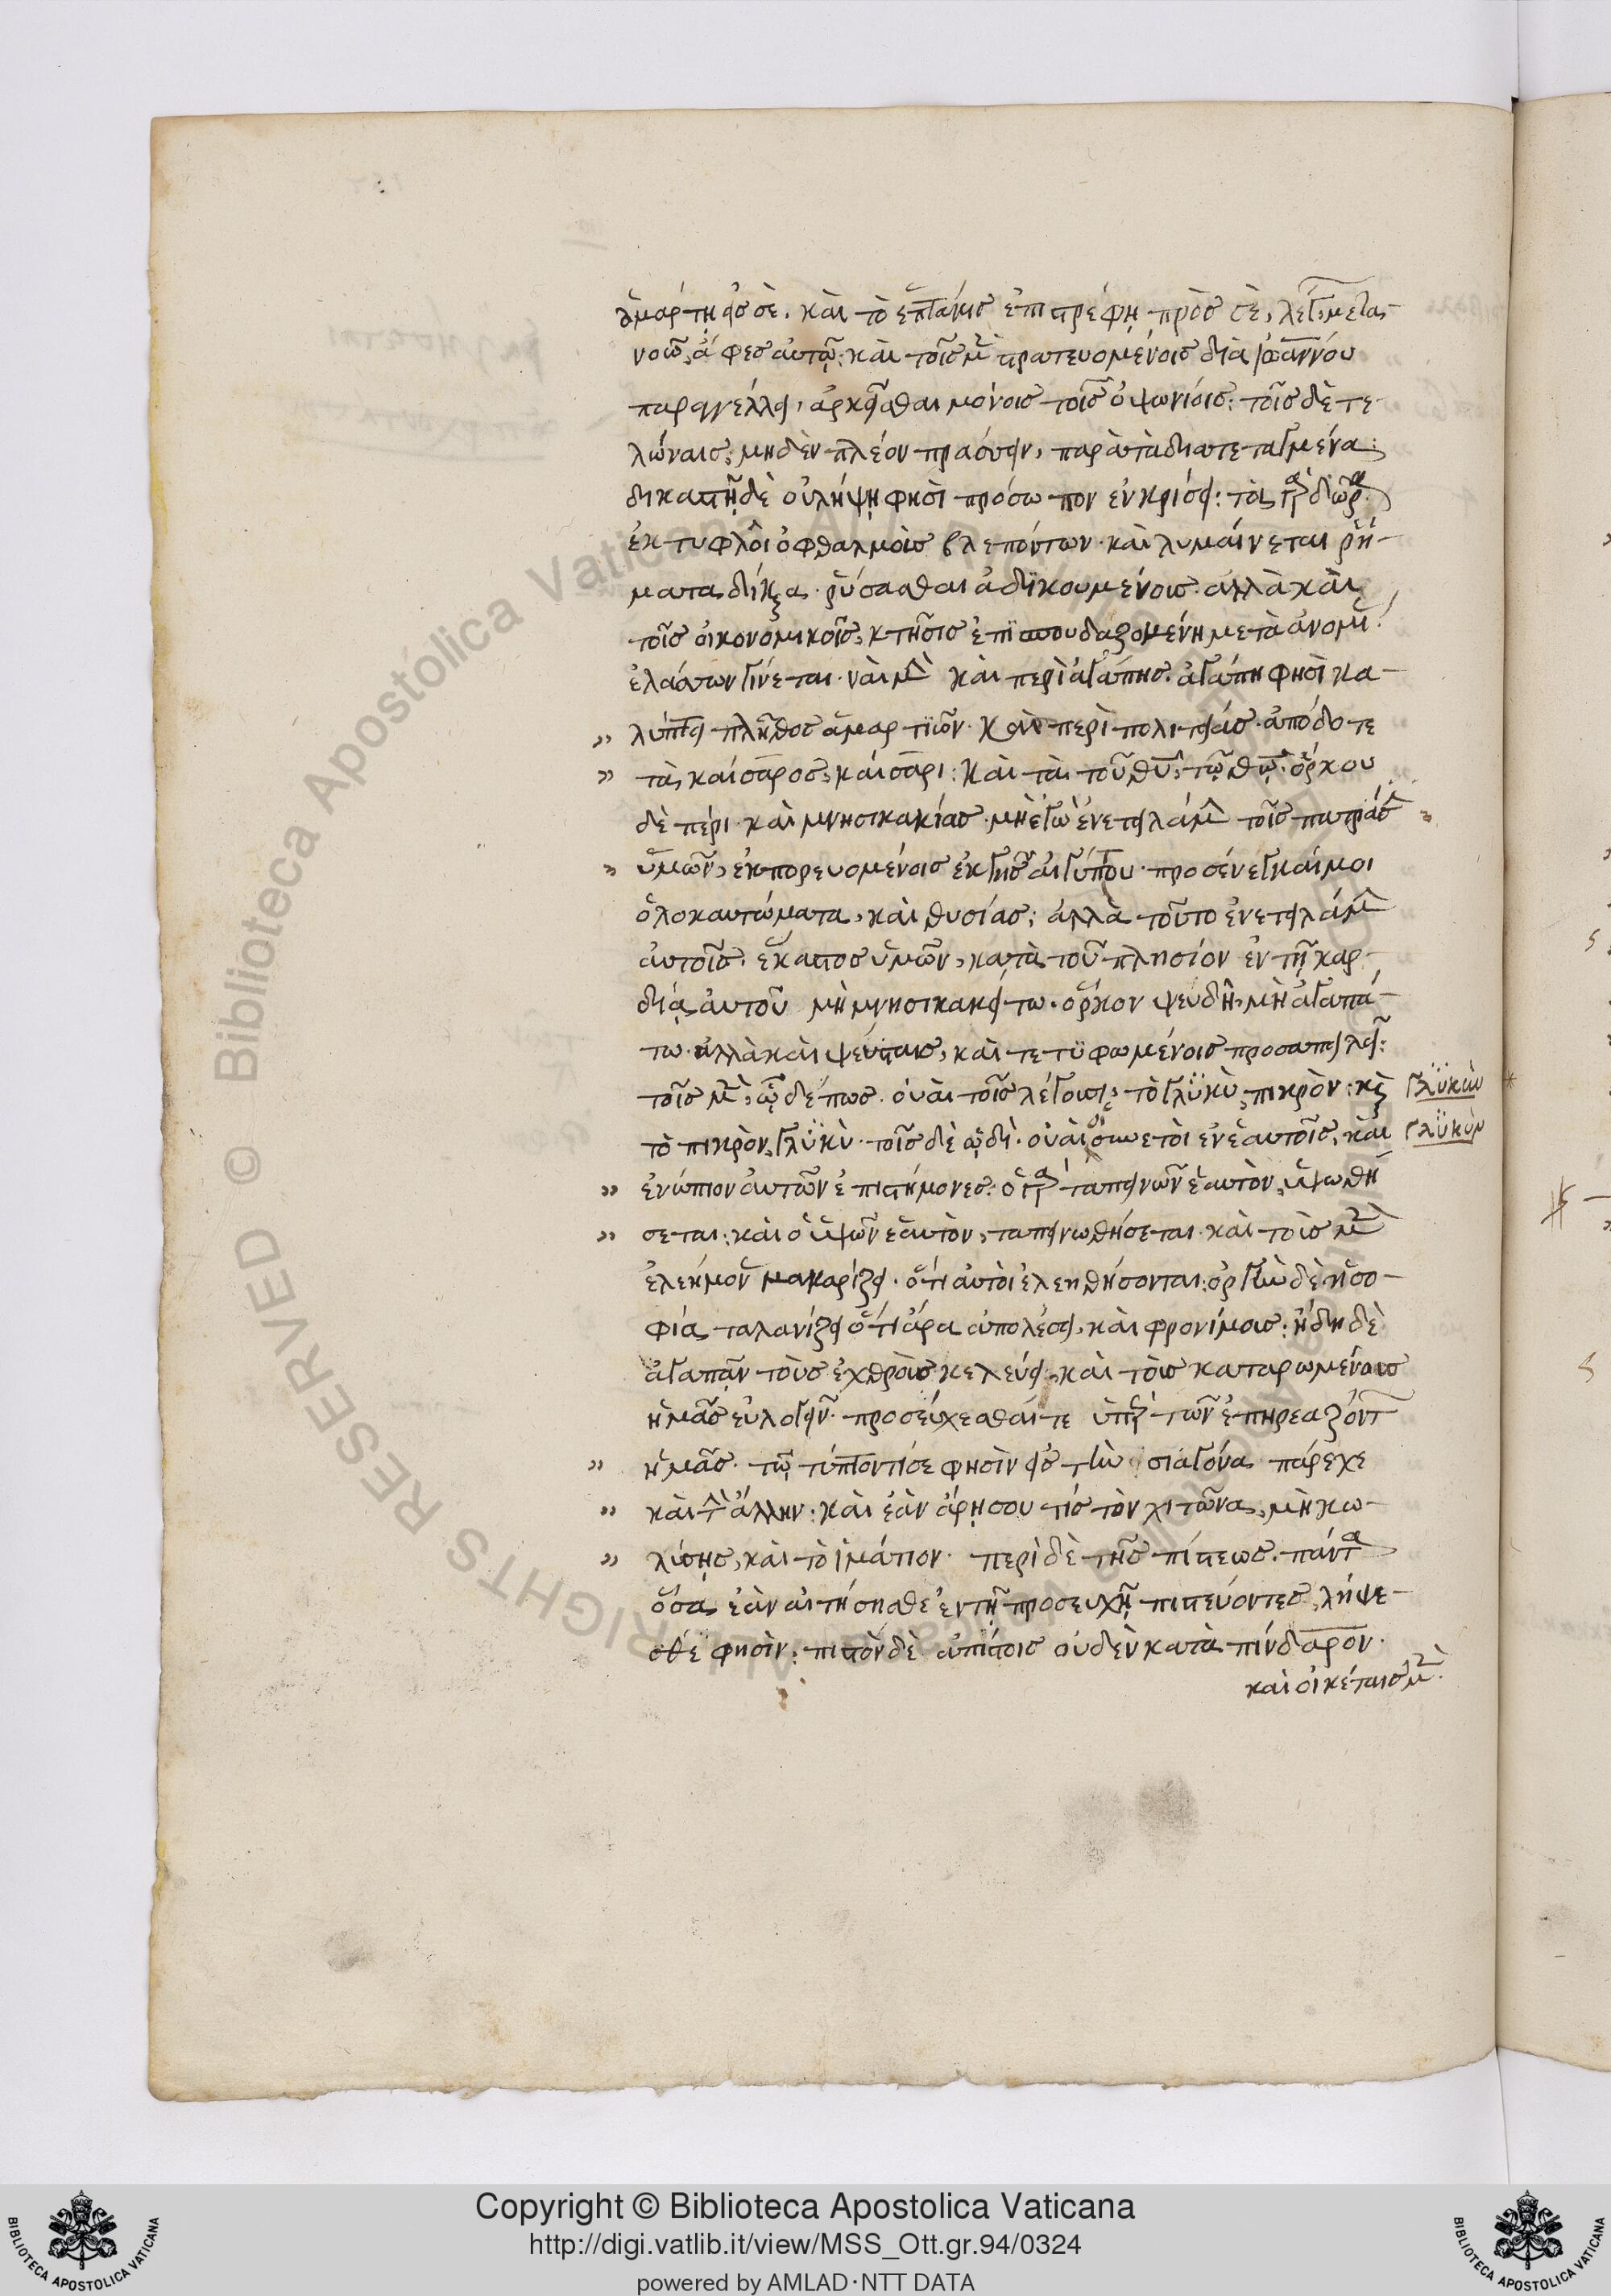 ἁμάρτῃ εἰς σὲ. καὶ τὸ ἑπτάκις ἐπιστρέψῃ πρὸς σὲ, λέγων μετα-
νοῶ, ἄφες αὐτῷ: καὶ τοῖς μὲν στρατευομένοις διὰ ἰωάννου
παραγγέλλει, ἀρκεῖσθαι μόνοις τοῖς ὀψωνίοις: τοῖς δὲ τε-
λώναις, μηδὲν πλέον πράσσειν, παρὰ τὰ διατεταγμένα:
δικαστῇ δὲ οὐ λήψῃ φησὶ πρόσωπον ἐν κρίσει: τὰ γὰρ δῶρα
ἐκτυφλοῖ ὀφθαλμοὺς βλεπόντων. καὶ λυμαίνεται ῥή-
ματα δίκαια. ῥύσασθαι ἀδικουμένους. ἀλλὰ καὶ
τοῖς οἰκονομικοῖς, κτῆσις ἐπισπουδαζομένη μετὰ ἀνομίας
ἐλάσσων γίνεται. ναὶ μὴν καὶ περὶ ἀγάπης. ἀγάπη φησὶ κα-
» λύπτει πλῆθος ἁμαρτιῶν. καὶ περὶ πολιτείας. ἀπόδοτε
» τὰ καίσαρος, καίσαρι: καὶ τὰ τοῦ θυ, τῷ θῷ. ὅρκου
δὲ πέρι. καὶ μνησικακίας. μὴ ἐγὼ ἐνετειλάμην τοῖς πατράσιν
» ὑμῶν, ἐκπορευομένοις ἐκ γῆς αἰγύπτου. προσενέγκαί μοι
ὁλοκαυτώματα, καὶ θυσίας: ἀλλὰ τοῦτο ἐνετειλάμην
αὐτοῖς. ἕκαστος ὑμῶν, κατὰ τοῦ πλησίον ἐν τῇ καρ-
δίᾳ αὐτοῦ μὴ μνησικακείτω. ὅρκον ψευδῆ, μὴ ἀγαπά-
τω. ἀλλὰ καὶ ψεύστας, καὶ τετυφωμένους προσαπειλεῖ:
τοῖς μὲν, ὧδέ πως. οὐαὶ τοῖς λέγουσι, τὸ γλυκὺ, πικρὸν: καὶ γλυκὺν
τὸ πικρὸν, γλυκὺ. τοῖς δὲ ὡδὶ. οὐαὶ οἱ συνετοὶ ἐν ἑαυτοῖς, καὶ γλυκὺν
» ἐνώπιον αὐτῶν ἐπιστήμονες: ὁ γὰρ ταπεινῶν ἑαυτὸν, ὑψωθή-
» σεται: καὶ ὁ ὑψῶν ἑαυτὸν, ταπεινωθήσεται. καὶ τοὺς μὲν
ἐλεήμονας μακαρίζει. ὅτι αὐτοὶ ἐλεηθήσονται: ὀργὴν δὲ ἡ σο-
φία ταλανίζει ὅτι ἄρα ἀπολέσει, καὶ φρονίμους: ἤδη δὲ
ἀγαπᾶν τοὺς ἐχθροὺς κελεύει, καὶ τοὺς καταρωμένους
ἡμᾶς εὐλογεῖν. προσεύχεσθαί τε ὑπὲρ τῶν ἐπηρεαζόντων
» ἡμᾶς. τῷ τύπτοντί σε φησὶν εἰς τὴν σιαγόνα πάρεχε
» καὶ τὴν ἄλλην: καὶ ἐὰν ἄρῃ σου τίς τὸν χιτῶνα, μὴ κω-
» λύσῃς, καὶ τὸ ἱμάτιον. περὶ δὲ τῆς πίστεως. πάντα
ὅσα ἐὰν αἰτήσησθε ἐν τῇ προσευχῇ πιστεύοντες, λήψε-
σθέ φησὶν: πιστὸν δὲ ἀπίστοις οὐδὲν κατὰ πίνδαρον.
καὶ οἰκέταις μὲν.
Copyright © Biblioteca Apostolica Vaticana
http://digi.vatlib.it/view/MSS_Ott.gr.94/0324
powered by AMLAD·NTT DATA